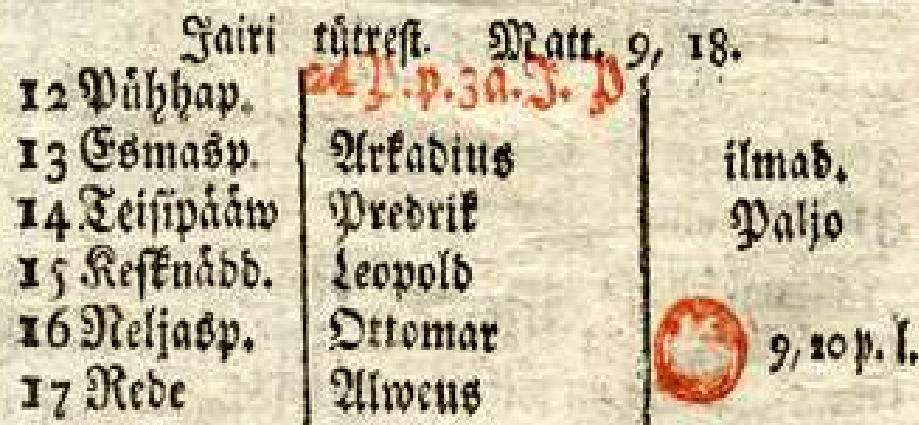 Jairi tütrest. Matt. 9, 18.
12 Pühhap. 24 P. p. 3 a. J. P
13 Esmasp. Arkadius ilmad.
14 Teisipääw Predrik Paljo
15 Kesknädd. Leopold
16 Neljasp. Ottomar 9, 20 p. l.
17 Rede Alweus